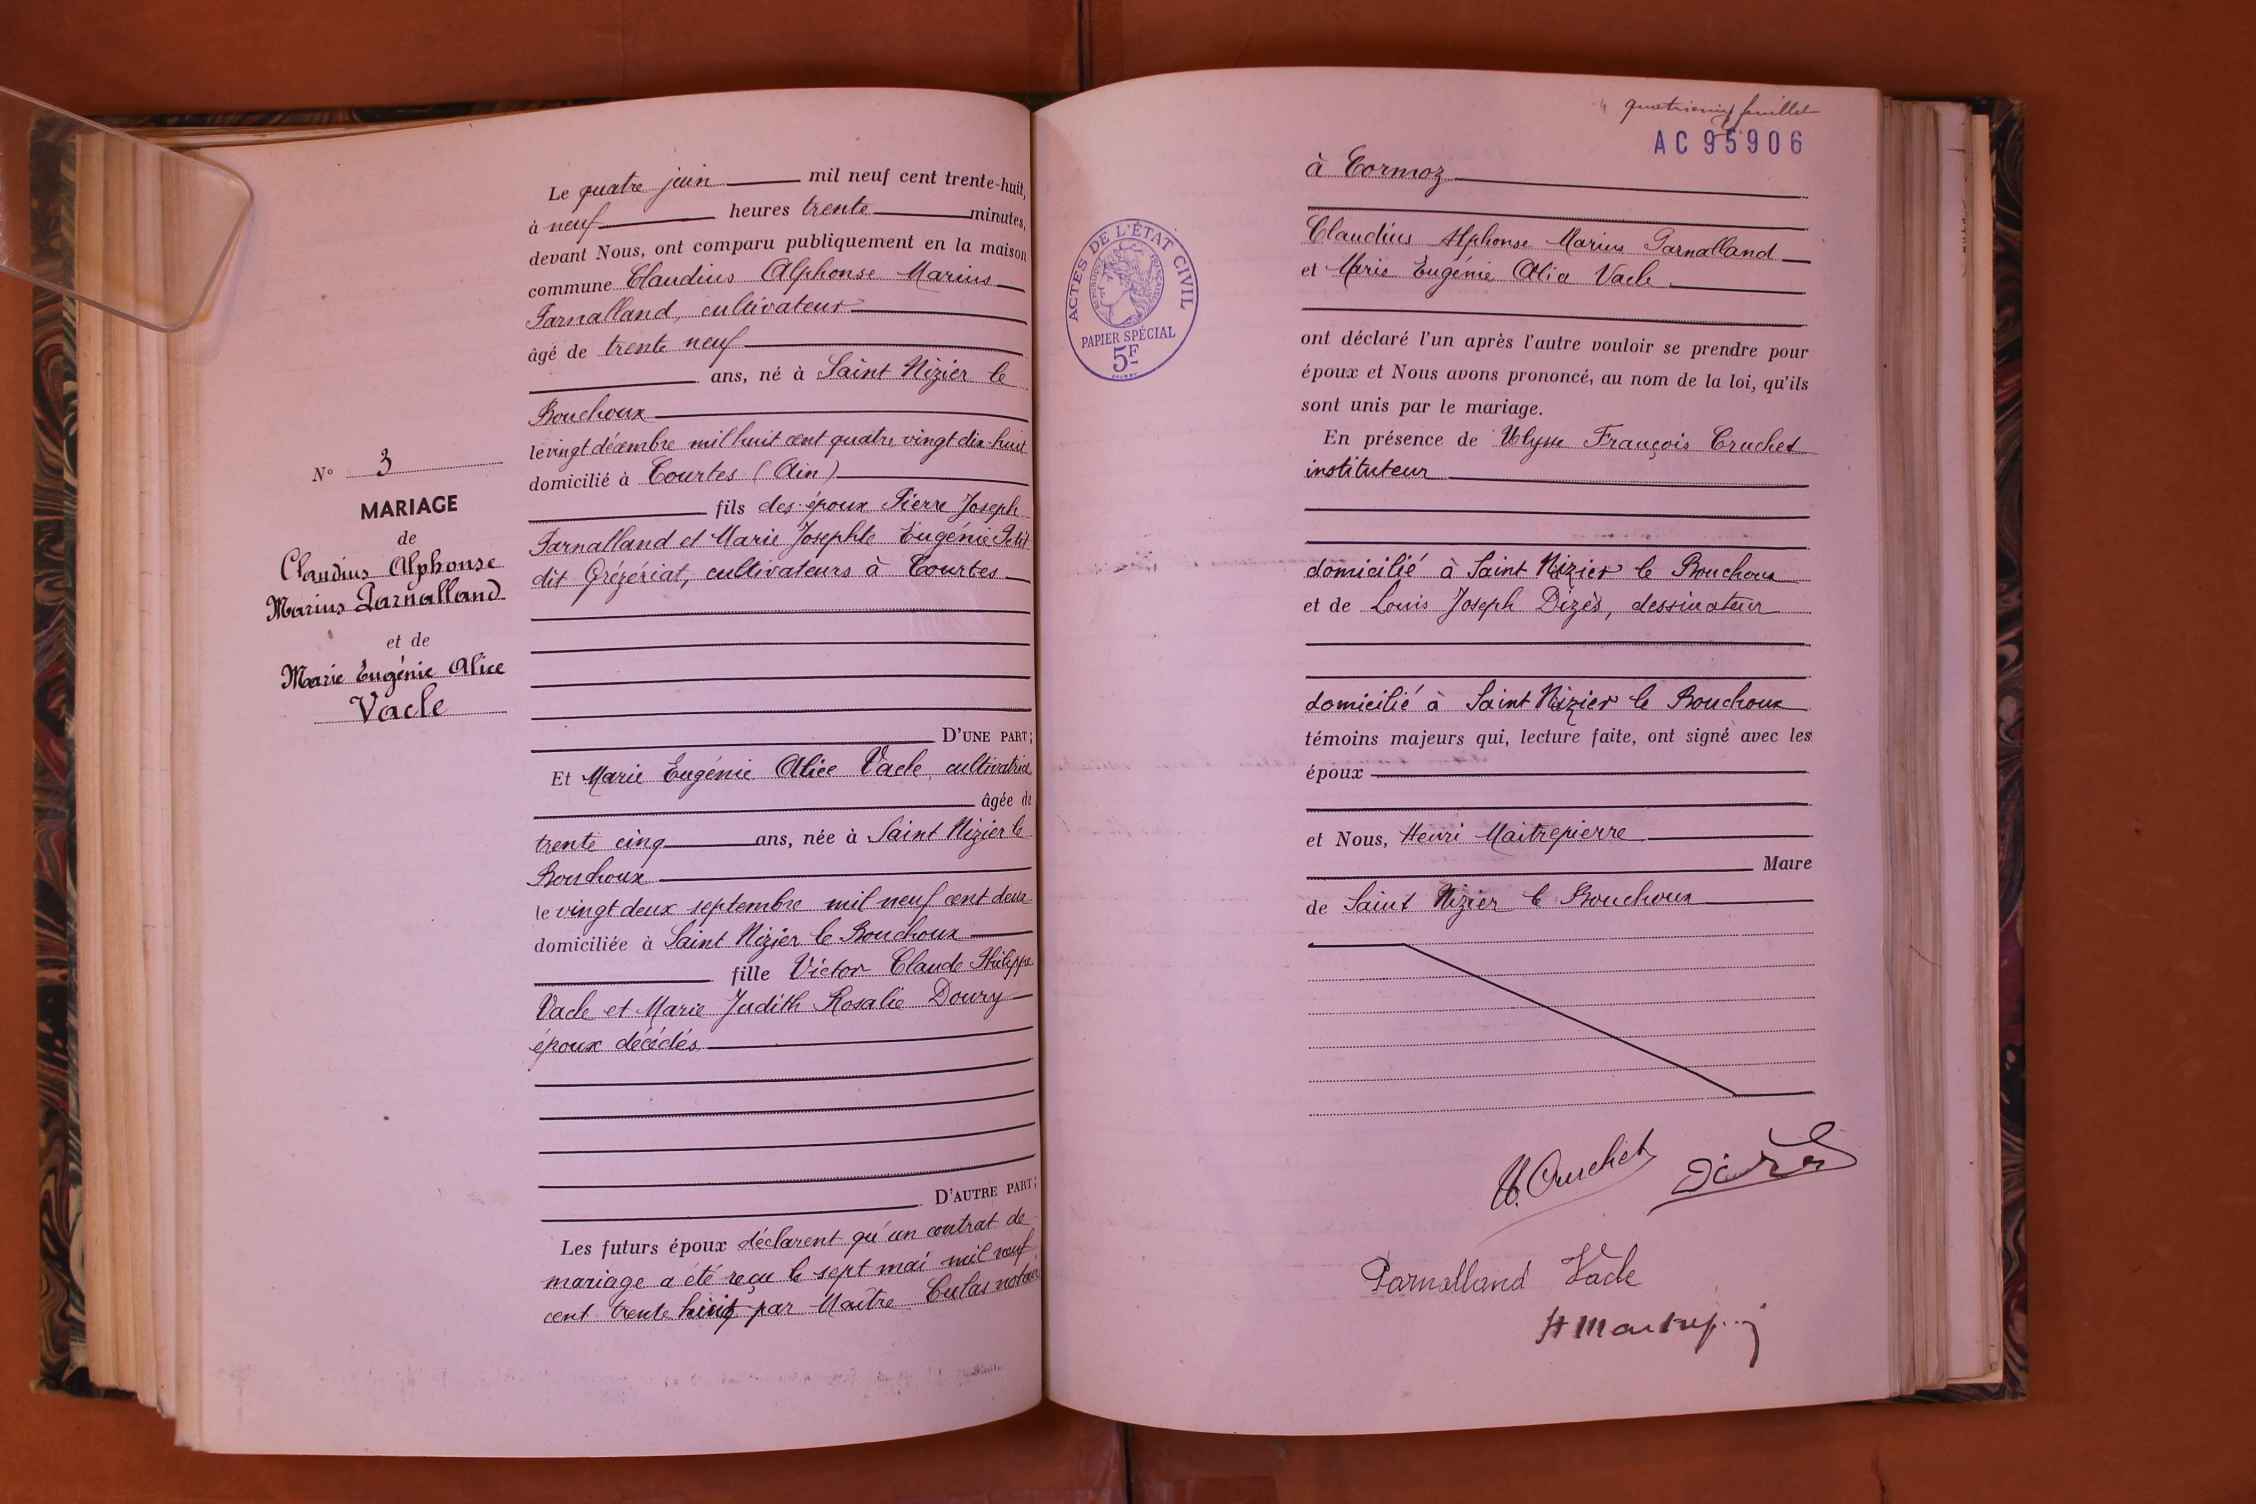 N° 3
MARIAGE
de
Claudius Alphonse
Marius Parnalland
et de
Marie Eugénie Alice
Vacle
Le quatre juin mil neuf cent trente-huit,
à neuf heures trente minutes,
devant Nous, ont comparu publiquement en la maison
commune Claudius Alphonse Marius
Parnalland, cultivateur
âgé de trente neuf
ans, né à Saint Nizier le
Bouchoux
le vingt décembre mil huit cent quatre vingt dix-huit
domicilié à Courtes (Ain)
fils des époux Pierre Joseph
Parnalland et Marie Josephte Eugénie Petit
dit Grézériat, cultivateurs à Courtes
D'UNE PART;
Et Marie Eugénie Alice Vacle, cultivatrice
âgée de
trente cinq ans, née à Saint Nizier le
Bouchoux
le vingt deux septembre mil neuf cent deux
domiciliée à Saint Nizier le Bouchoux
fille Victor Claude Philippe
Vacle et Marie Judith Rosalie Doury
époux décédés
D'AUTRE PART;
Les futurs époux déclarent qu'un contrat de
mariage a été reçu le sept mai mil neuf
cent trente huit par Maître Culas notaire
quatrième feuillet
AC 95906
à Cormoz
ACTES DE L'ÉTAT CIVIL
RÉPUBLIQUE FRANÇAISE
PAPIER SPÉCIAL
5F
Claudius Alphonse Marius Parnalland
et Marie Eugénie Alice Vacle
ont déclaré l'un après l'autre vouloir se prendre pour
époux et Nous avons prononcé, au nom de la loi, qu'ils
sont unis par le mariage.
En présence de Ulysse François Cruchet
instituteur
domicilié à Saint Nizier le Bouchoux
et de Louis Joseph Dizès, dessinateur
domicilié à Saint Nizier le Bouchoux
témoins majeurs qui, lecture faite, ont signé avec les
époux
et Nous, Henri Maitrepierre
Maire
de Saint Nizier le Bouchoux
U. Cruchet
Dizès
Parnalland Vacle